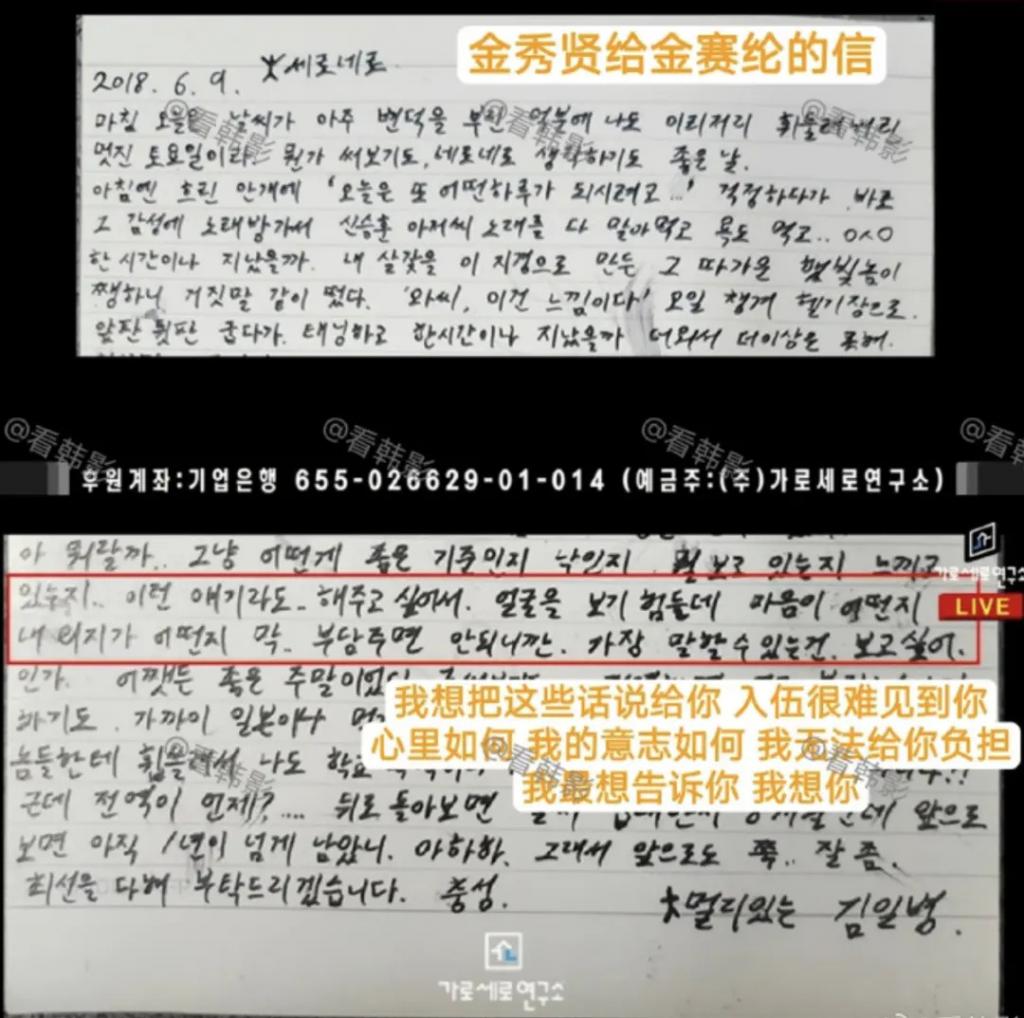 金秀贤给金赛纶的信
2018. 6. 9. 세로네로
마침 오늘은 날씨가 아주 변덕을 부린 덕분에 나도 이리저리 휘둘려버린
멋진 토요일이라. 뭔가 써보기도, 세로네로 생각하기도 좋은 날.
아침엔 흐린 안개에 '오늘은 또 어떤하루가 되시려고...' 걱정하다가 바로
그 감성에 노래방가서 신승훈 아저씨 노래를 다 말아먹고 욕도 먹고.. ㅇㅅㅇ
한시간이나 지났을까. 내 살갗을 이 지경으로 만든 그 따가운 햇빛놈이
쨍하니 거짓말 같이 떴다. '와씨, 이건 느낌이다' 오일 챙겨 헬기장으로.
앞판 뒷판 굽다가. 태닝하고 한시간이나 지났을까 더워서 더이상은 못해.
@看韩影
후원계좌:기업은행 655-026629-01-014 (예금주:(주)가로세로연구소)
아 뭐랄까.. 그냥 어떤게 좋은 기준인지 낙인지 뭘 보고 있는지 느끼고
가로세로연구소
LIVE
있는지.. 이런 얘기라도.. 해주고 싶어서. 얼굴을 보기 힘들데 마음이 어떤지
내 의지가 어떤지 막.. 부담주면 안되니깐. 가장 말할수있는건. 보고싶어.
인가. 어쨋든 좋은 주말이었다
我想把这些话说给你 入伍很难见到你
하기도. 가까이 일본이나
心里如何 我的意志如何 我无法给你负担
놈들한테 휩쓸려서 나도 학교
我最想告诉你 我想你
근데 전역이 언제?.... 뒤로 돌아보면 앞으로
보면 아직 1년이 넘게 남았니. 아하하. 그래서 앞으로도 쭉.. 잘 좀.
최선을 다해 부탁드리겠습니다. 충성.
멀리있는 김일병.
가로세로연구소